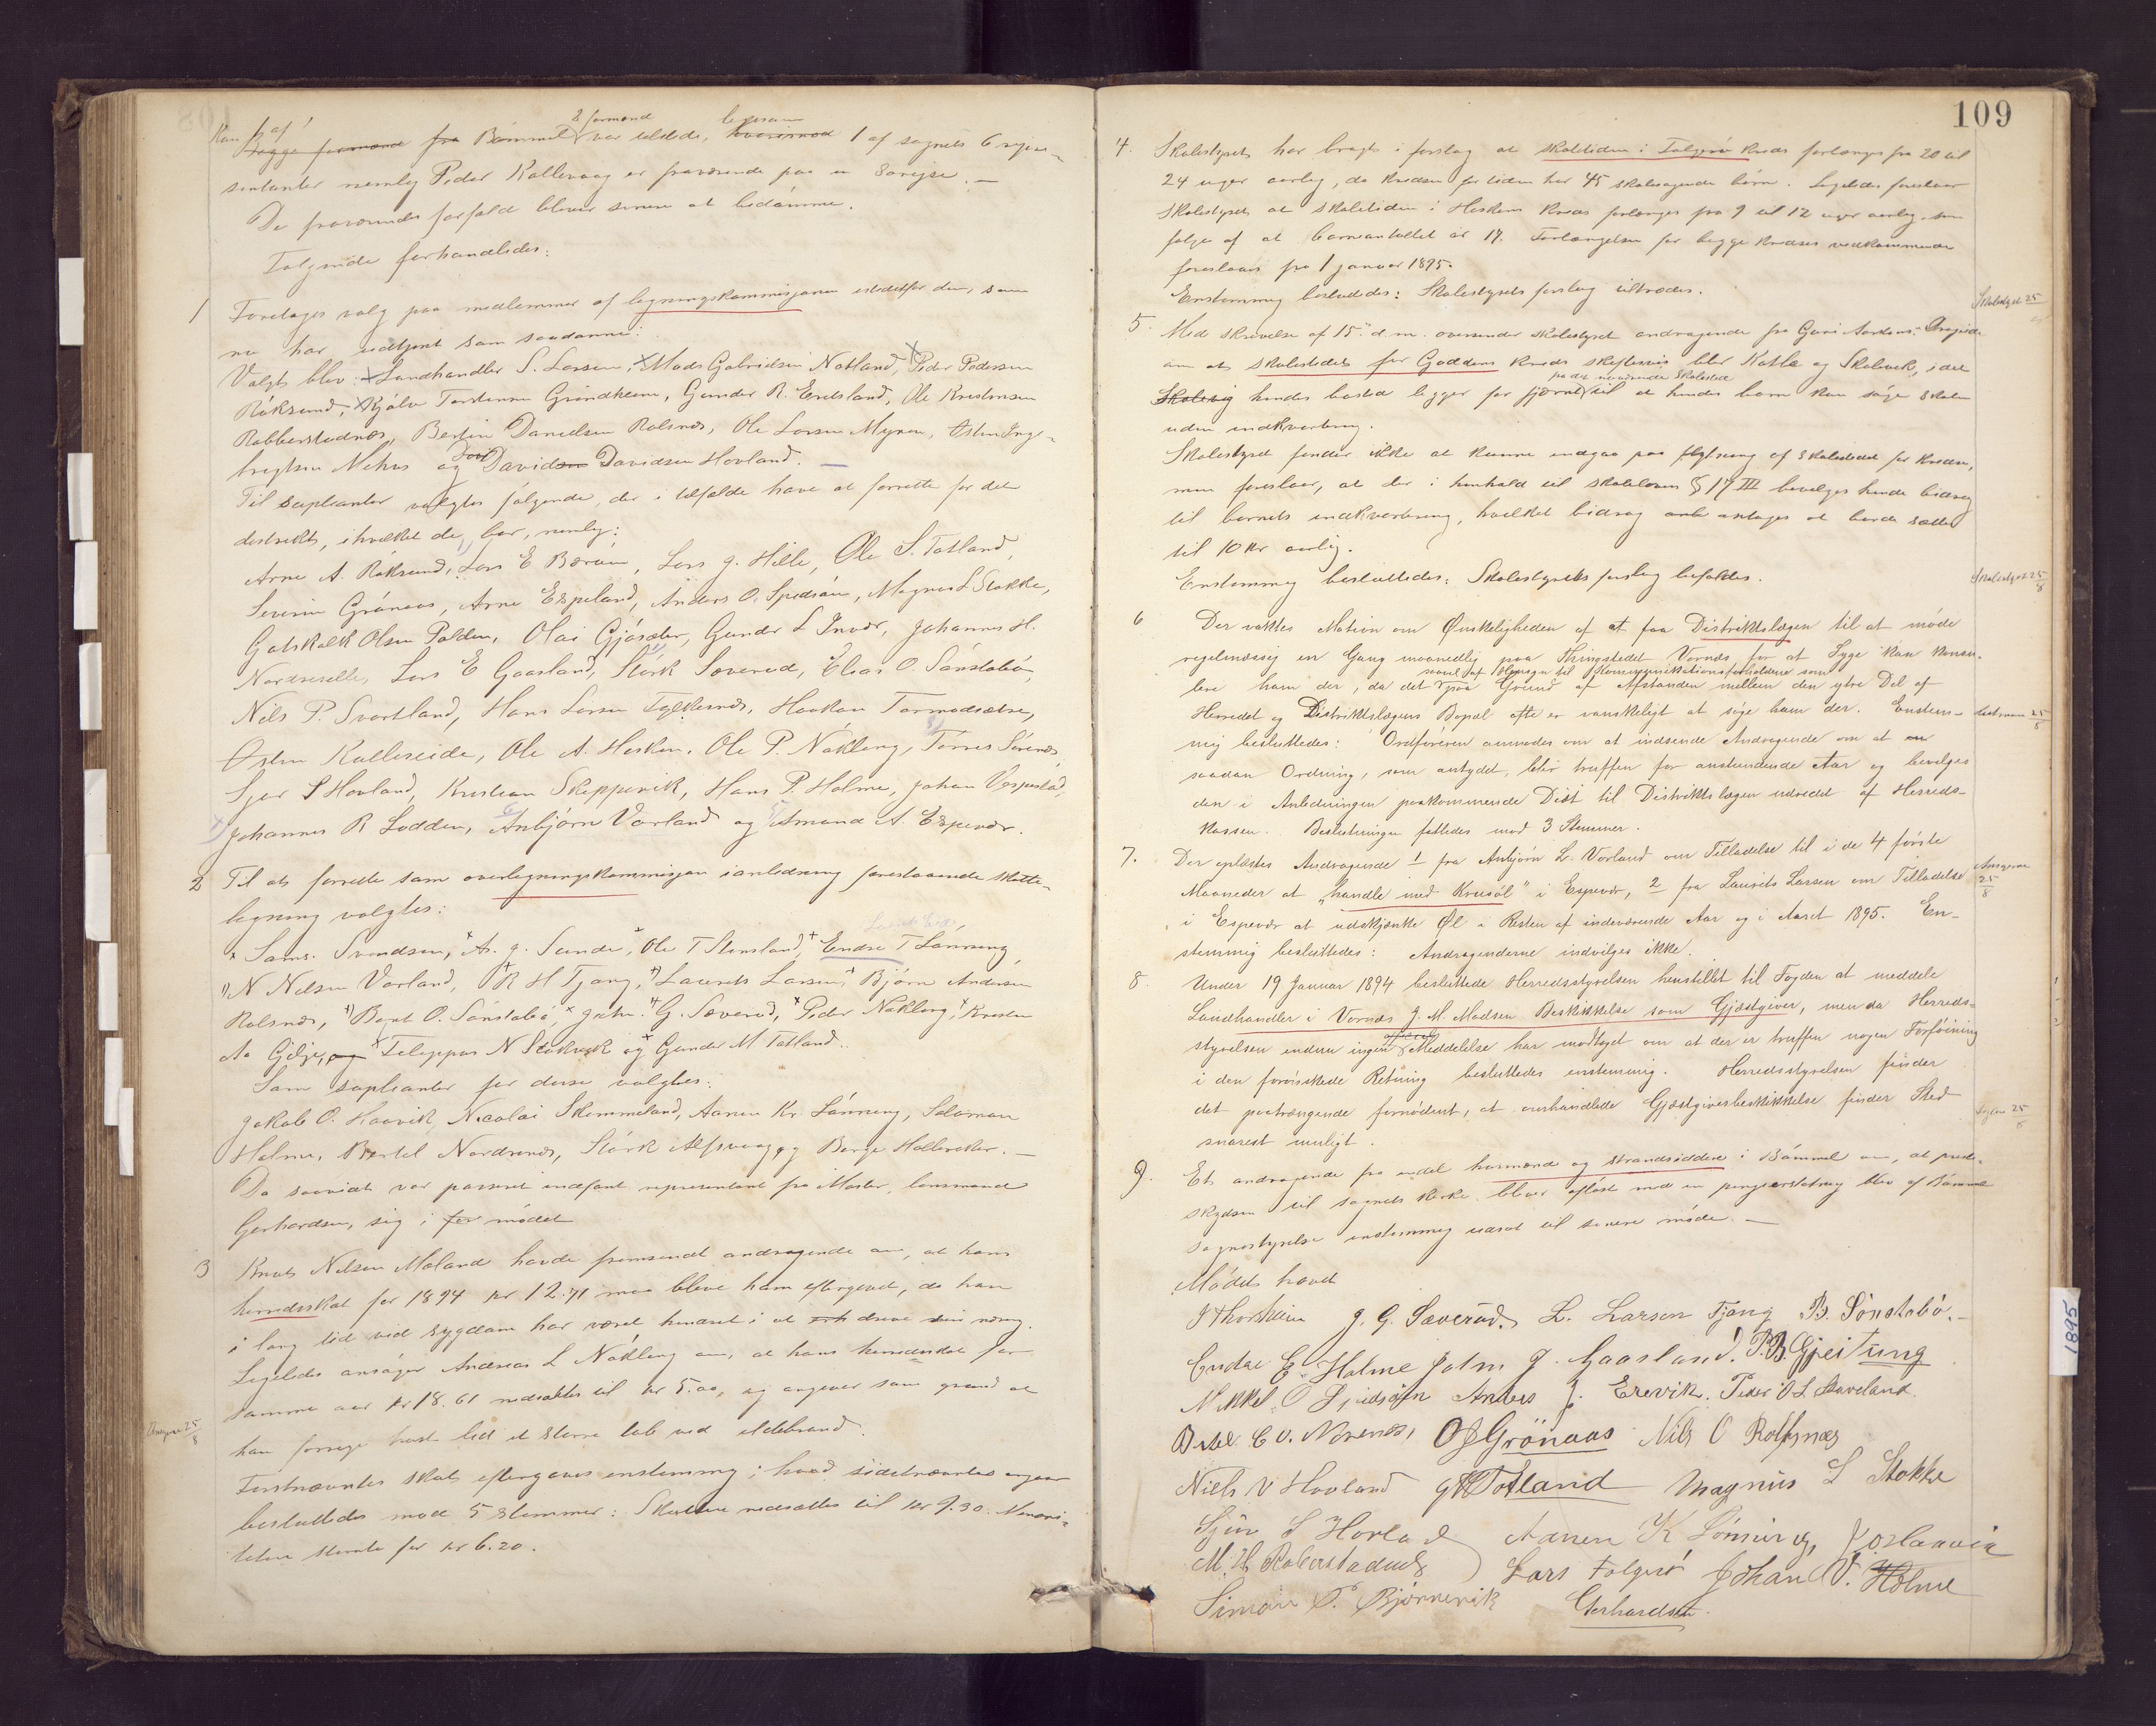 Kun 1 af 2 formænd ligesom
Begge formænd fra Bømmel var tilstede, hvorimod 1 af sognets 6 repræ-
sentanter nemlig Peder Kallevaag er fraværende paa en søreise. —
De fraværendes forfald bliver senere at bedømme.
Følgende forhandledes:
1 Foretages valg paa medlemmer af ligningskommisjonen istedetfor dem, som
nu har udtjent som saadanne:
Valgt blev: Landhandler S. Larsen, Mads Gabrielsen Notland, Peder Pedersen
Røksund, Kjøln Torstensen Grindheim, Gunder R. Eidsland, Ole Kristensen
Robberstadnes, Bertin Danielsen Rolsnes, Ole Larsen Myren, Østen Inge-
brigtsen Nehus og David Davidsen Hovland. —
Til supleanter valgtes følgende, der i tilfælde have at forrette for det
distrikt, i hvilket de bor, nemlig:
Arne A. Røksund, Lars E Børøen, Lars J. Hille, Ole S. Totland,
Severin Grønaas, Arne Espeland, Anders O. Spidsøen, Magnus L Stokke,
Gotskalk Olsen Folden, Olai Gjøsæter, Gunder L Innvær, Johannes H.
Nordreselle, Lars E Gaasland, Størk Sæverud, Elias O. Sønstabø,
Nils P. Svortland, Hans Larsen Fylkesnes, Haakon Tormodsætre,
Østen Kalleseide, Ole A. Hisken, Ole P. Nøkling, Tørres Sørenes
Sjur S Hovland, Kristian Skeppevik, Hans P. Holme, Johan Vespestad,
Johannes R Lodden, Anbjørn Vorland og Amund A. Espevær.
2 Til at forrette som overligningskommisjon i anledning forestaaende skatte-
ligning valgtes:
Sams. Svendsen, A. J. Sunde, Ole T Stensland, Endre T Lønning,
N Nilsen Vorland, R H Tjong, Laurits Larsen, Bjørn Andersen
Rolsnes, Bent O. Sønstabø, John G. Sæverud, Peder Nøkling, Kristen
Aa Gjeije, og Filippus N Stokvik og Gunder M Totland..
Som suplianter for disse valgtes:
Jakob O. Haavik, Nicolai Skimmeland, Aanen Kr. Lønning, Salomon
Holme, Bertel Nordnæs, Størk Alfsvaag og Børge Hallaraker. —
Da saavidt var passeret indfant representant fra Moster, lensmand
Gerhardsen, sig i for mødet
3 Knut Nilsen Moland havde fremsendt andragende om, at hans
herredsskat for 1894 kr 12.71 maa blive ham eftergivet, da han
i lang tid ved sygdom har været hindret i at drive sin næring.
Ligeledes ansøger Andreas L Nøkling om, at hans herredsskat for
samme aar kr 18.61 nedsættes til kr 5.00, og angiver som grund at
han forrige høst led et større tab ved ildebrand.
Ansøgerne 25/8
Førstnævntes skat eftergaves enstemmig; hvad sidstnævntes angaar
besluttedes mod 5 stemmer: Skatten nedsættes til kr 9.30. Minori-
teten stemte for kr 6.20.
109
4. Skolestyret har bragt i forslag at skoletiden i Folgerø kreds forlænges fra 20 til
24 uger aarlig, da kredsen for tiden har 45 skolesøgende børn. Ligeledes foreslaar
Skolestyret at skoletiden i Hiskens kreds forlænges fra 9 til 12 uger aarlig, som
følge af at barneantallet er 17. Forlængelsen for begge kredses vedkommende
foreslaaes fra 1 januar 1895.
Enstemmig besluttedes: Skolestyrets forslag tiltrædes.
Skolestyret 25/8
5. Med skrivelse af 15. d.m. oversender skolestyret andragende fra Guri
om at skolestedet for Goddens kreds skiftesvis blir Katla og Skolevik, idet
paa det nuværende skolested
Skolevig hendes bosted ligger for fjernt til at hendes barn kan søge skolen
uden indkvartering.
Skolestyret finder ikke at kunne indgaa paa flytning af skolestedet for kredsen,
men foreslaar, at der i henhold til skoleloven § 17 III bevilges hende bidrag
til barnets indkvartering, hvilket bidrag antages at burde sættes
til 10 kr aarlig.
Enstemmig besluttedes: Skolestyrets forslag bifaldes.
Skolestyret 25/8
6 Der vaktes Motion om Ønskeligheden af at faa Distriktslægen til at møde
regelmæssig en Gang maanedlig paa Thingstedet Vornæs for at Syge kan konsu-
savel af Hensyn til Kommunikationsforholdene som
lere ham der, da det paa Grund af Afstanden mellem den ytre Del af
Herredet og Distriktslægens Bopæl ofte er vanskeligt at søge ham der. Enstem-
mig besluttedes: Ordføreren anmodes om at indsende Andragende om at en
saadan Ordning, som antydet, blir truffen for anstundende Aar og bevilges
den i Anledningen paakommende Diæt til Distriktslægen udredet af Herreds-
kassen. Beslutningen fattedes mod 3 Stemmer.
7. Der oplæstes Andragende 1 fra Anbjørn L. Vorland om Tilladelse til i de 4 første
Maaneder at "handle med Krusøl" i Espevær, 2 fra Laurits Larsen om Tilladelse
i Espevær at udskjænke Øl i Resten af indeværende Aar og i Aaret 1895. En-
stemmig besluttedes: Andragenderne indvilges ikke.
Ansøgerne 25/8
8. Under 19 Januar 1894 besluttede Herredsstyrelsen henstillet til Fogden at meddele
Landhandler i Vornæs J. M. Madsen Beskikkelse som Gjæstgiver, men da Herreds-
styrelsen endnu ingen officiel Meddelelse har modtaget om at der er truffen nogen Forføining
i den forønskede Retning besluttedes enstemmig. Herredsstyrelsen finder
det paatrængende fornødent, at omhandlede Gjæstgiverbeskikkelse finder Sted
snarest muligt.
Fogden 25/8
9. Et andragende fra endel husmænd og strandsiddere i Bømmel om, at preste-
skydsen til sognets kirke bliver afløst med en pengeerstatning blev af Bømmel
sognestyrelse enstemmig udsat til senere møde. —
Mødet hævet
J Thorsheim J. G. Sæverud. L. Larsen Tjong B. Sønstabø. —
Endre E. Holme John J. Gaasland. P. B. Gjeitung
Mikkel O Spidsøen Anders J. Erevik. Peder O L Haveland.
Bertel E O. Nornes, O J Grönaas Nils O Rolfsnæs
Niels V Hovland G M Totland Magnus L Stokke
Sjur S Hovland Aanen K Lønning, J O Haavik
M. H. Roberstadnes Lars Folgerø Johan V. Holme
Simon P. Bjørnevik Gerhardsen.
1895